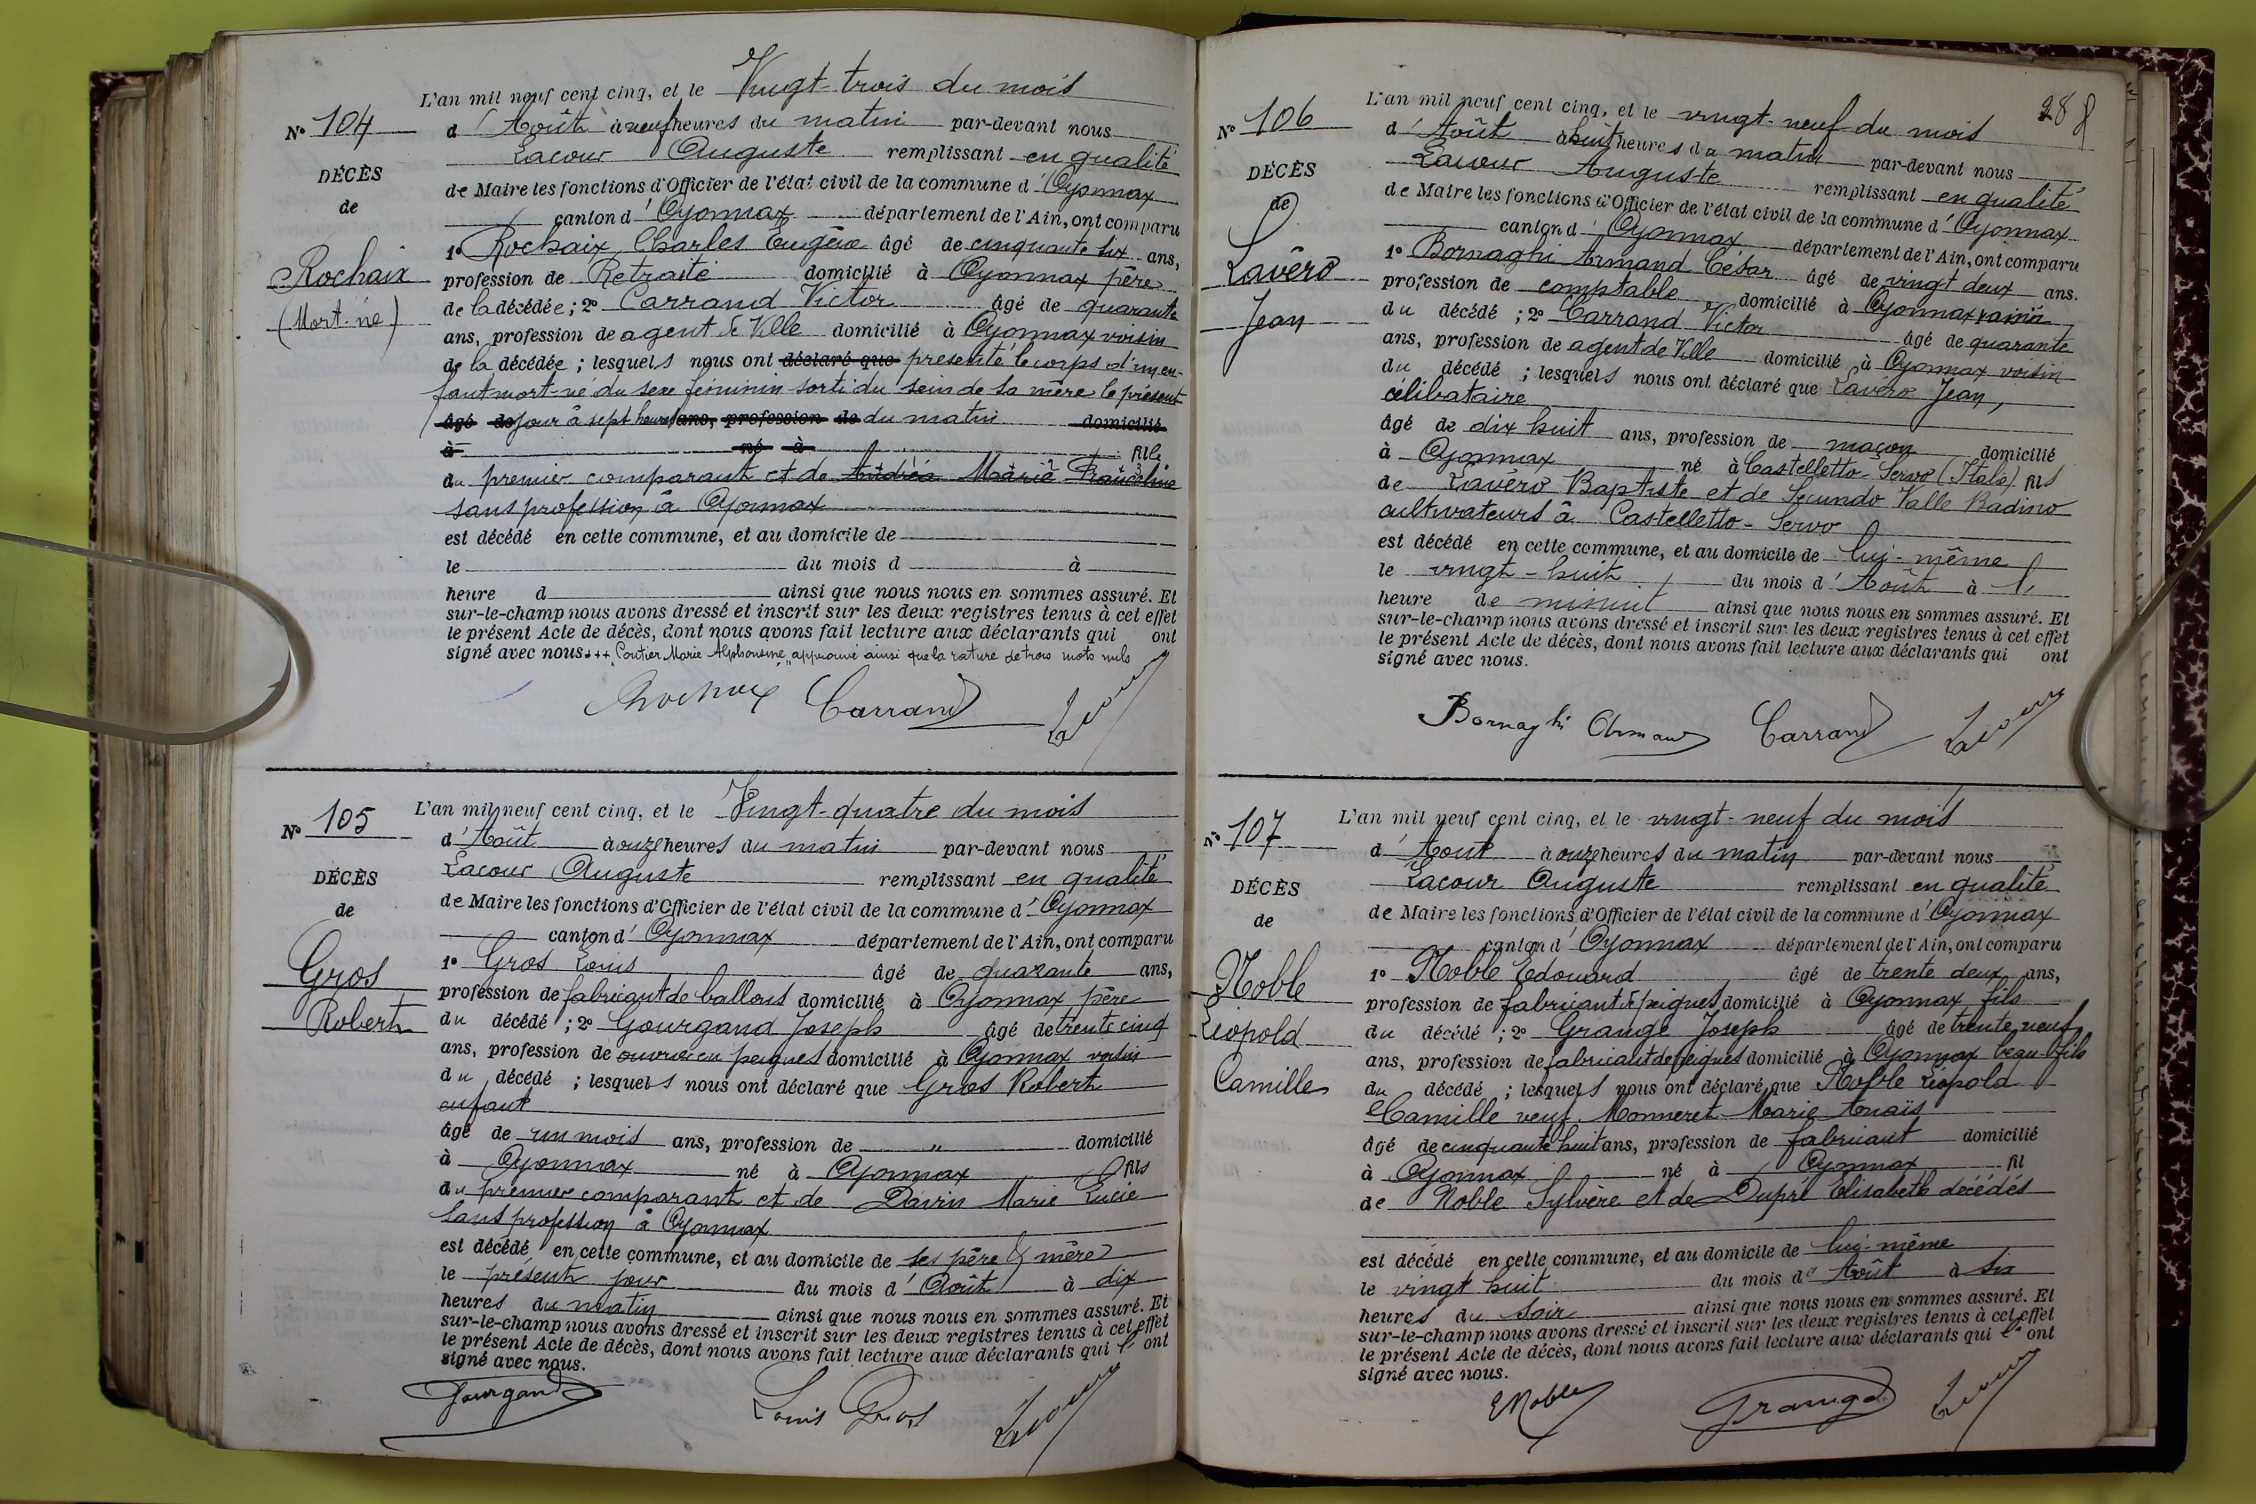 L'an mil neuf cent cinq, et le Vingt-trois du mois
N° 104
d'Août à neuf heures du matin par-devant nous
Lacour Auguste remplissant en qualité
DÉCÈS
de Maire les fonctions d'Officier de l'état civil de la commune d'Oyonnax
de
canton d'Oyonnax département de l'Ain, ont comparu
1° Rochaix Charles Eugène âgé de cinquante six ans,
Rochaix
profession de Retraité domicilié à Oyonnax père
(Mort-né)
de la décédée; 2° Carrand Victor âgé de quarante
ans, profession de agent de Ville domicilié à Oyonnax voisin
de la décédée; lesquels nous ont déclaré que présenté le corps d'un en-
fant mort-né du sexe féminin sorti du sein de sa mère le présent
âgé de jour à sept heures ans, profession de du matin domicilié
à né à fille
du premier comparant et de Andréa Marie Francéline
sans profession à Oyonnax
est décédé en cette commune, et au domicile de
le du mois d à
heure d ainsi que nous nous en sommes assuré. Et
sur-le-champ nous avons dressé et inscrit sur les deux registres tenus à cet effet
le présent Acte de décès, dont nous avons fait lecture aux déclarants qui ont
signé avec nous. +++ "Coutier Marie Alphonsine" approuvé ainsi que la rature de trois mots nuls
Rochaix Carrand Lacour
L'an mil neuf cent cinq, et le Vingt-quatre du mois
N° 105
d'Août à onze heures du matin par-devant nous
Lacour Auguste remplissant en qualité
DÉCÈS
de Maire les fonctions d'Officier de l'état civil de la commune d'Oyonnax
de
canton d'Oyonnax département de l'Ain, ont comparu
1° Gros Louis âgé de quarante ans,
Gros
profession de fabricant de ballons domicilié à Oyonnax père
Robert
du décédé; 2° Gourgand Joseph âgé de trente cinq
ans, profession de ouvrier en peignes domicilié à Oyonnax voisin
du décédé; lesquels nous ont déclaré que Gros Robert
enfant
âgé de un mois ans, profession de " domicilié
à Oyonnax né à Oyonnax fils
du premier comparant et de Davin Marie Lucie
sans profession à Oyonnax
est décédé en cette commune, et au domicile de ses père & mère
le présent jour du mois d'Août à dix
heures du matin ainsi que nous nous en sommes assuré. Et
sur-le-champ nous avons dressé et inscrit sur les deux registres tenus à cet effet
le présent Acte de décès, dont nous avons fait lecture aux déclarants qui l' ont
signé avec nous.
Gourgand Louis Gros Lacour
288
L'an mil neuf cent cinq, et le vingt-neuf du mois
N° 106
d'Août à huit heures du matin par-devant nous
Lacour Auguste remplissant en qualité
DÉCÈS
de Maire les fonctions d'Officier de l'état civil de la commune d'Oyonnax
de
canton d'Oyonnax département de l'Ain, ont comparu
1° Bornaghi Armand César âgé de vingt deux ans.
Lavéro
profession de comptable domicilié à Oyonnax
Jean
du décédé; 2° Carrand Victor âgé de quarante
ans, profession de agent de Ville domicilié à Oyonnax voisin
du décédé; lesquels nous ont déclaré que Lavéro Jean,
célibataire
âgé de dix huit ans, profession de maçon domicilié
à Oyonnax né à Castelletto-Servo (Italie) fils
de Lavéro Baptiste et de Secundo Valle Radino
cultivateurs à Castelletto-Servo
est décédé en cette commune, et au domicile de lui-même
le vingt-huit du mois d'Août à l'
heure de minuit ainsi que nous nous en sommes assuré. Et
sur-le-champ nous avons dressé et inscrit sur les deux registres tenus à cet effet
le présent Acte de décès, dont nous avons fait lecture aux déclarants qui ont
signé avec nous.
Bornaghi Armand Carrand Lacour
L'an mil neuf cent cinq, et le vingt-neuf du mois
N° 107
d'Août à onze heures du matin par-devant nous
Lacour Auguste remplissant en qualité
DÉCÈS
de Maire les fonctions d'Officier de l'état civil de la commune d'Oyonnax
de
canton d'Oyonnax département de l'Ain, ont comparu
1° Noble Edouard âgé de trente deux ans,
Noble
profession de fabricant de peignes domicilié à Oyonnax fils
Léopold
du décédé; 2° Grange Joseph âgé de trente neuf
ans, profession de fabricant de peignes domicilié à Oyonnax beau-fils
Camille
du décédé; lesquels nous ont déclaré que Noble Léopold
Camille veuf Monneret Marie Anaïs
âgé de cinquante huit ans, profession de fabricant domicilié
à Oyonnax né à Oyonnax fil
de Noble Sylvère et de Dupré Elisabeth décédés
est décédé en cette commune, et au domicile de lui-même
le vingt huit du mois d'Août à six
heures du soir ainsi que nous nous en sommes assuré. Et
sur-le-champ nous avons dressé et inscrit sur les deux registres tenus à cet effet
le présent Acte de décès, dont nous avons fait lecture aux déclarants qui l' ont
signé avec nous.
E Noble Grange Lacour